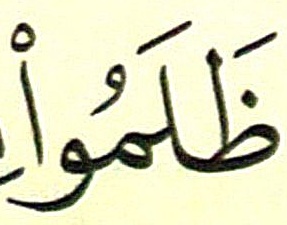 ظَلَمُواْ